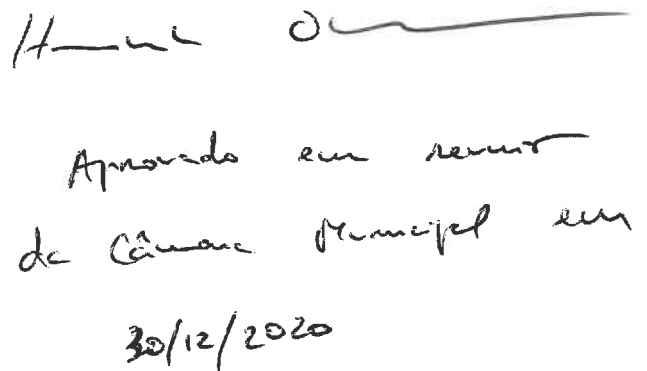 Aprovado em reunião
da Câmara Municipal em
30/12/2020